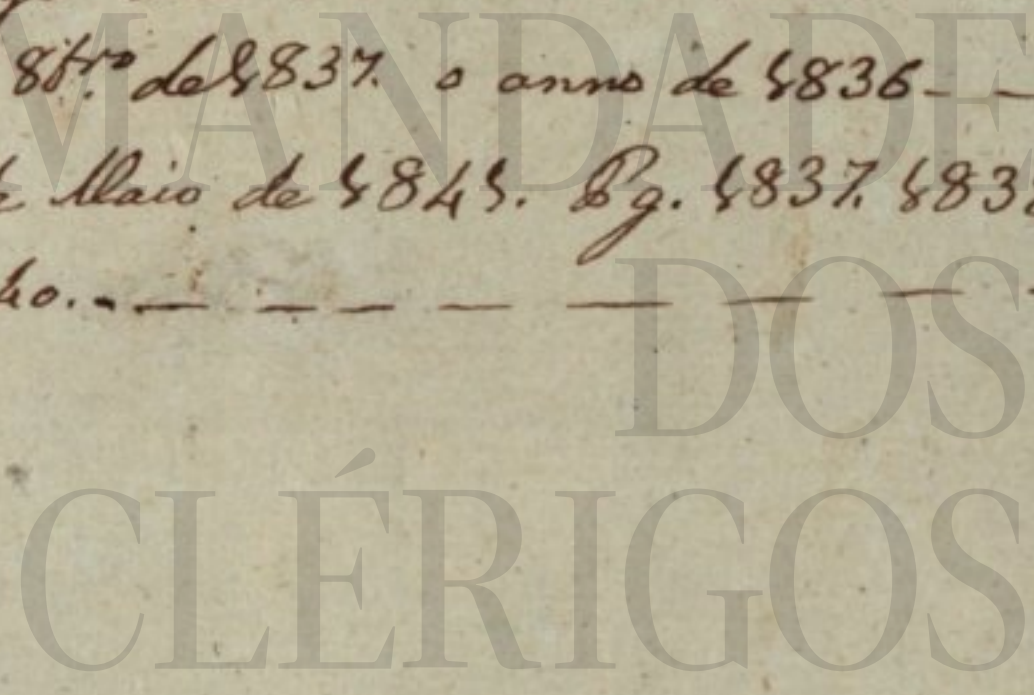 8bro de 1837. o anno de 1836 - -
Maio de 1841. Pg. 1837. 183
ho. - - - - - - - -
MANDADE
DOS
CLÉRIGOS